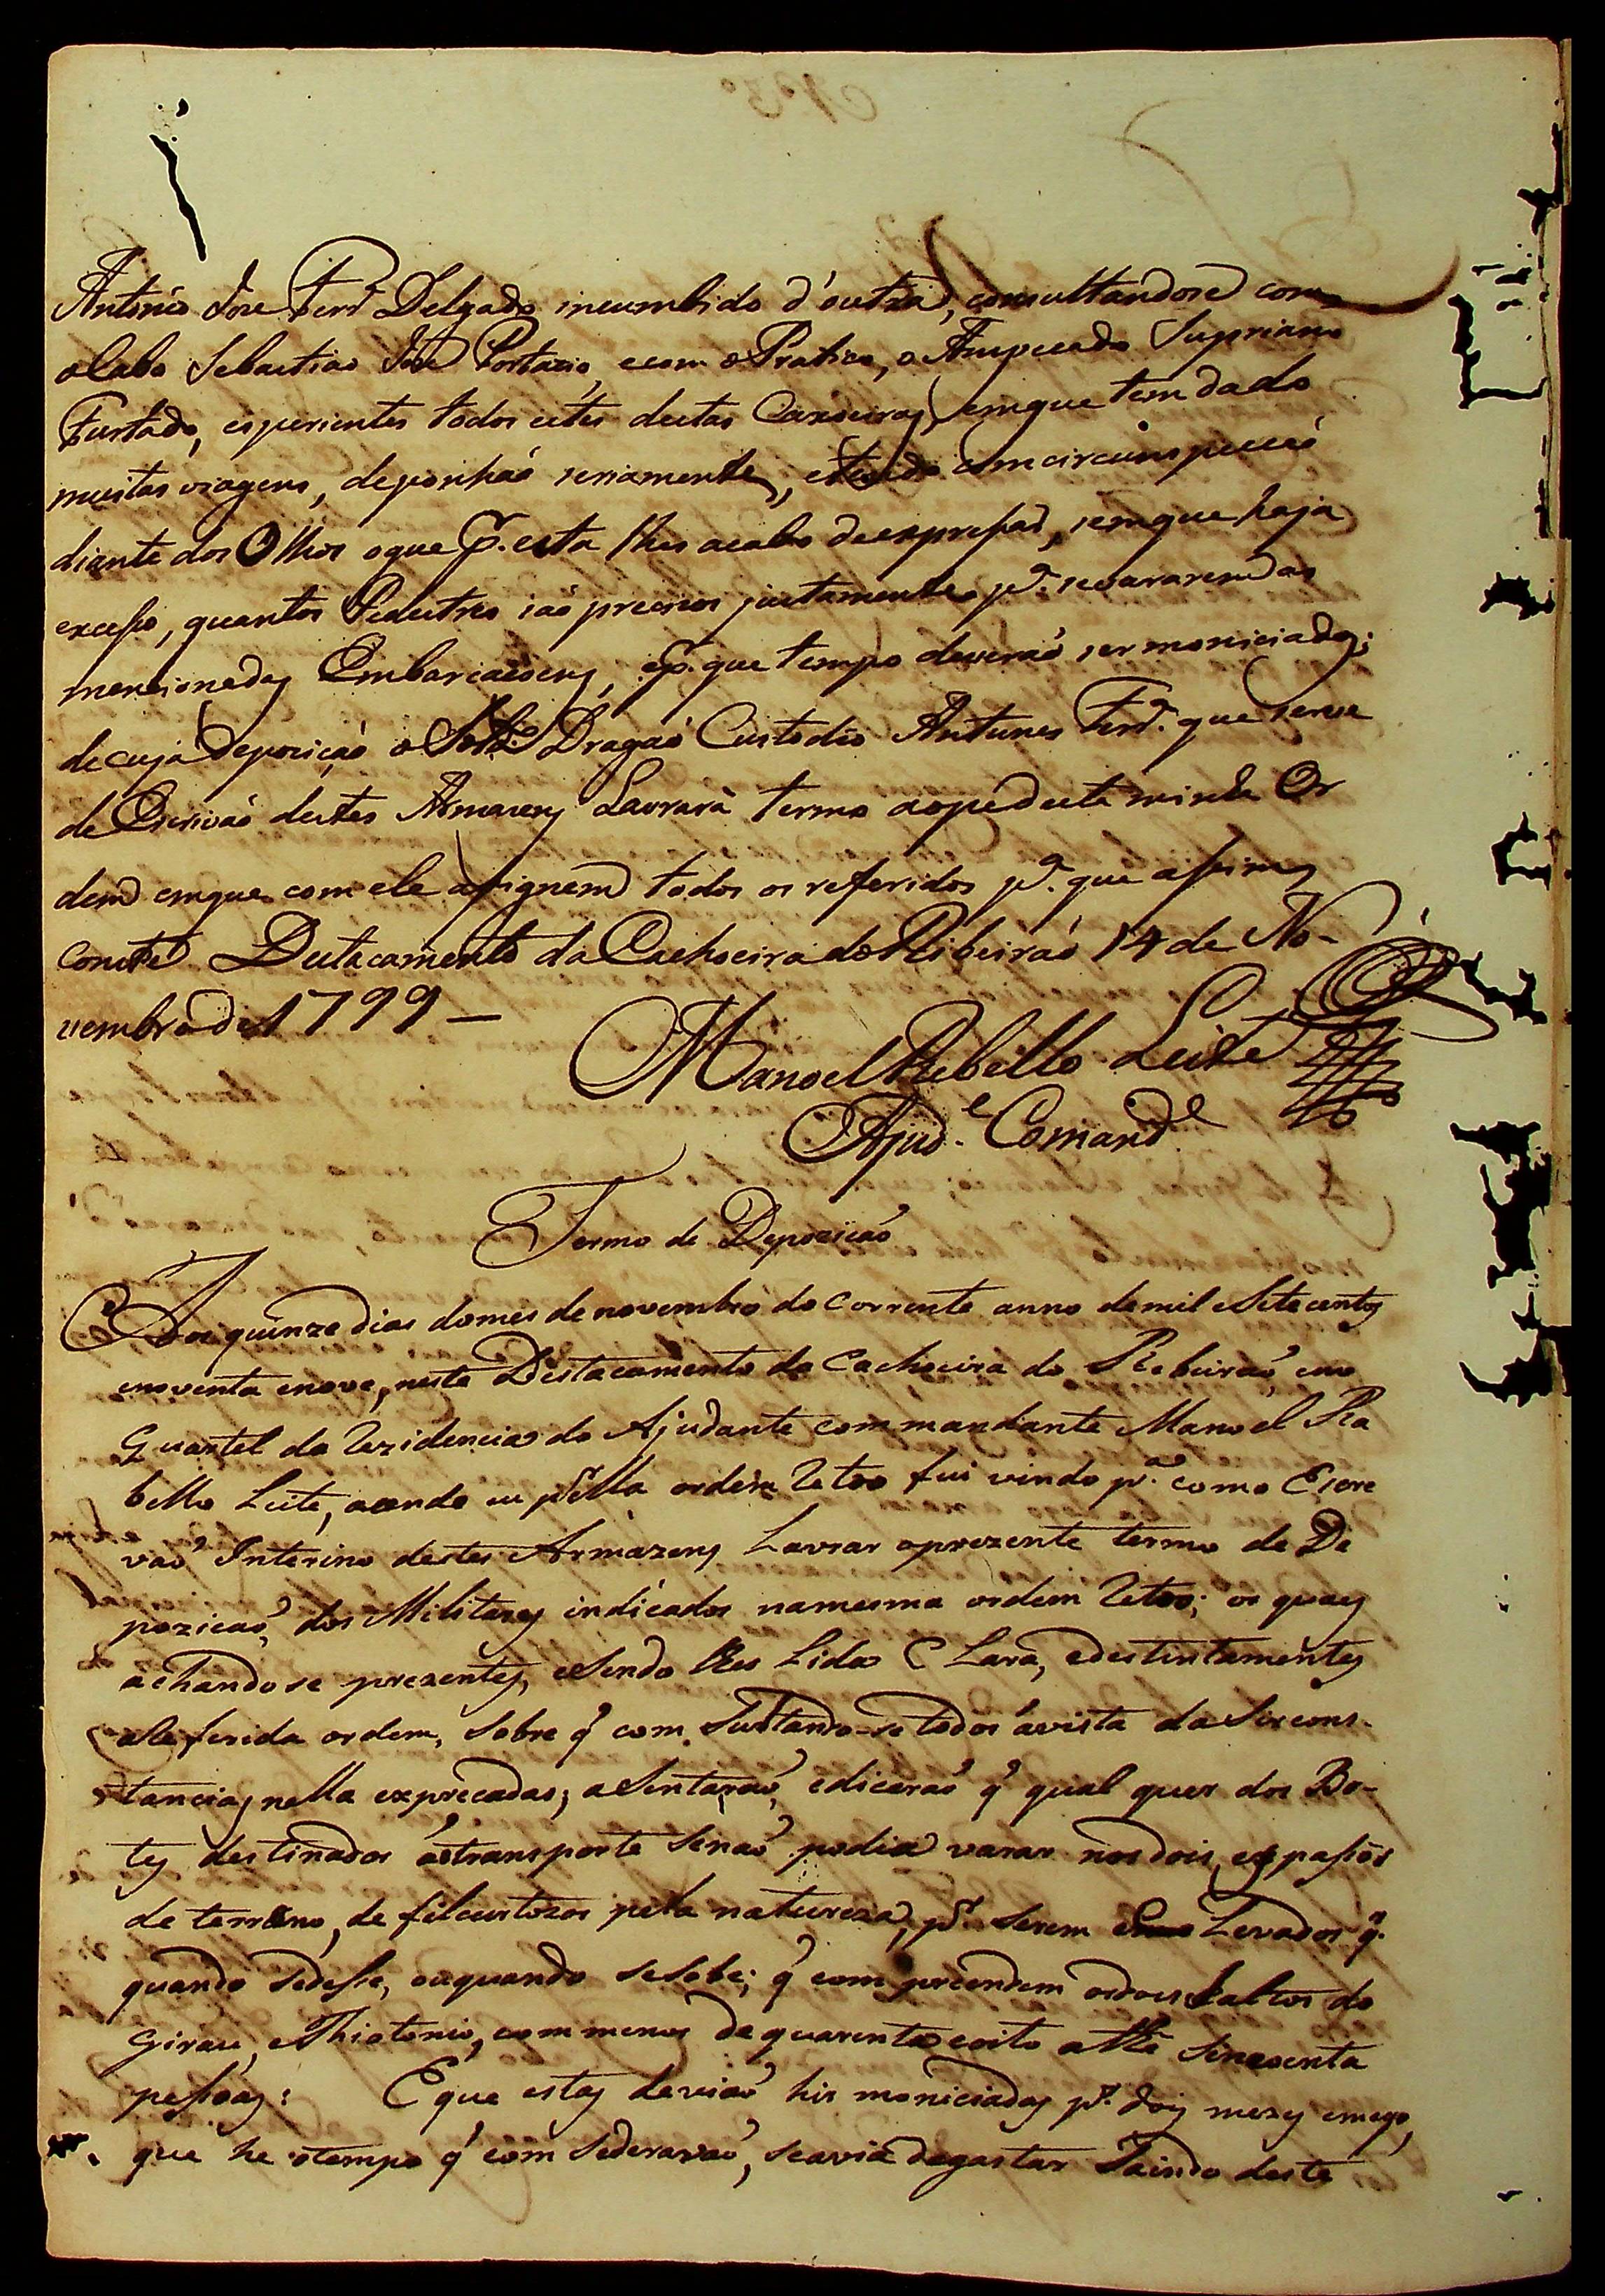 Antonio Jose Ferr.ª Delgado incumbido d'outra, consultandose com
o Cabo Sebastiao Jose Portacio, e com o Pratico, o Anspecado Supriano
Furtado, esperientes todos estes destas Caxoeiras, emque tem dado
muitas viagens, deponhaó seriamente, etendo com circunspecuió
diante dos Olhos o que p. esta lhes acabo de expressar, sem que haja
excesso, quantos Pedestres saó precisos justamente p.ª se vararem as
mencionadas Embarcaçoens, e p. que tempo deveraó ser moniciados;
de cuja Deposiçaó o Sold.º Dragaó Custodio Antunes Ferr.ª que serve
de Escrivaó destes Armazens Lavrará termo ao pe desta minha Or
dem emque com ele assignem todos os referidos p.ª que assim
conste Destacamento da Cachoeira do Ribeiraó 14 de No-
vembro de 1799 —
Manoel Rebello Leite
Ajud.e Comand.e
Termo de Depoziçaó
Aos quinze dias do mes de novembro do corrente anno de mil e Sete centos
enoventa enove, neste Destacamento da Cachoeira do Rebeiraó, eno
Quartel da Rezidencia do Ajudante commandante Manoel Ra
bello Leite, aonde eu p.ella ordem Retro fui vindo p.ª como Escre
vaó Interino destes Armazens Lavrar oprezente termo de De
poziçaó, dos Militares indicados namesma ordem Retro; os quaes
achandose prezentes, eSendo lhes Lida CLara, edestintamente
aReferida ordem, Sobre q̃ com Sultando-se todos ávista da Sircons-
tancias nella expreçadas; aSentaraó, ediceraó q̃ qual quer dos Bo-
tes destinados áotransporte Senaó podia varar nos dois espassos
de terreno, de ficultozos pela natureza, p.ª Serem Levados q̃.
quando Sedesse, ouquando Se Sobe; q̃ com prendem os dois Saltos do
Girau, eThiotonio, com menos de quarenta eoito athe Sincoenta
pessoas: E que estas deviaó hir moniciadas p.ª dois mezes emeyo,
que he otempo q̃ com Sederavaó, Seavia degastar Saindo deste